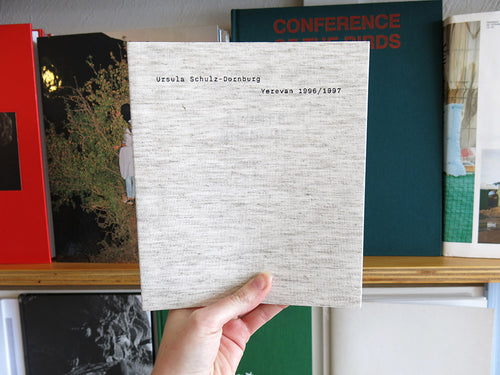 CONFERENCE
OF THE BIRDS
Ursula Schulz-Dornburg
Yerevan 1996/1997